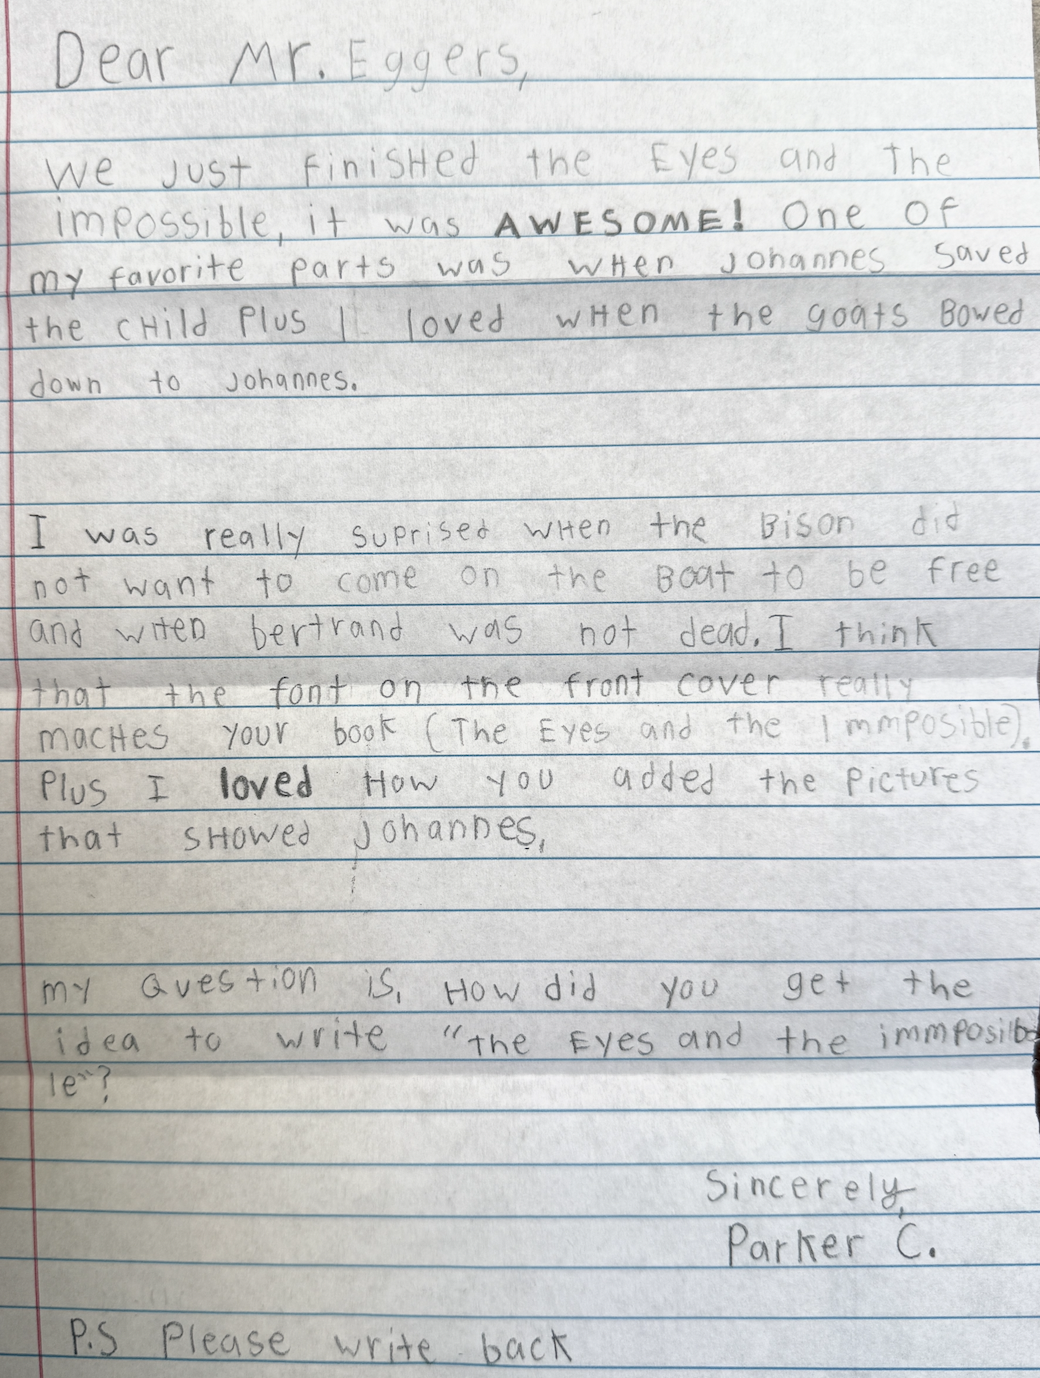 Dear Mr. Eggers,
We Just finisHed the Eyes and The
impossible, it was AWESOME! One OF
my favorite parts was wHen Johannes saved
the cHild Plus I loved wHen the goats Bowed
down to Johannes.
I was really suprised wHen the Bison did
not want to come on the Boat to be free
and wHen bertrand was not dead. I think
that the font on the front cover really
macHes your book (The Eyes and the Immposible).
Plus I loved How you added the Pictures
that sHowed Johannes,
my Question is, How did you get the
idea to write "the Eyes and the immposilb
le"?
Sincerely,
Parker C.
P.S Please write back